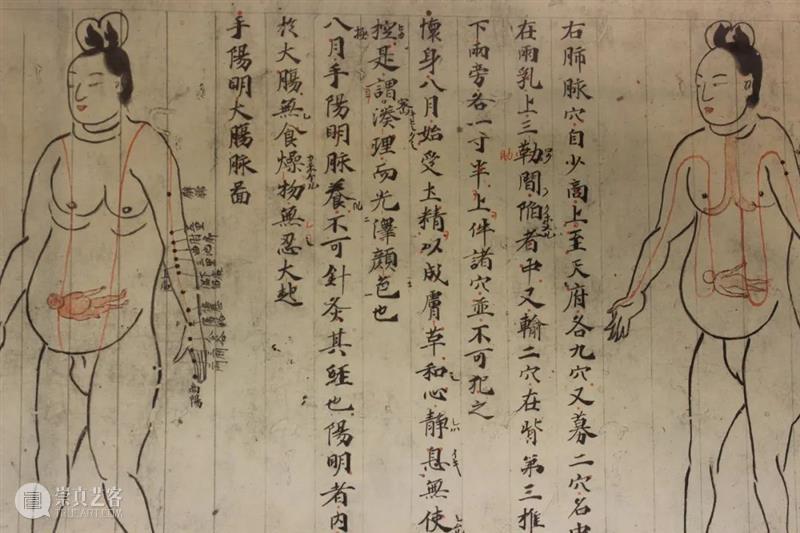 右肺脉穴自少商上至天府各九穴又募二穴名中
在兩乳上三勒間陷者中又輸二穴在背第三推
肋
下兩旁各一寸半上件諸穴並不可犯之
懷身八月始受土精以成膚革和心靜息無使
控是謂湊理而光澤顔色也
極
八月手陽明脉養不可針灸其經也陽明者内
於大腸無食燥物無忍大起
手陽明大腸脉啚
商陽
崇真艺客